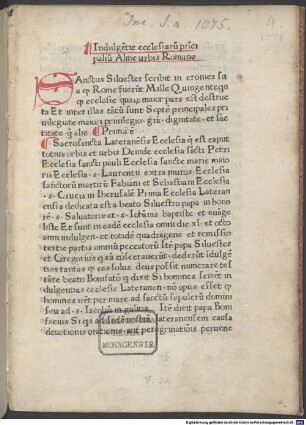 Inc. s. a. 1075.
Indulgẽtie ecclesiarũ prĩci
paliũ Alme urbis Romane
SAnctus Siluester scribit in cronica su
a ꝙ Rome fuerũt Mille Quingenteqn
ꝗ ecclesie quaꝝ maior pars est destruc
ta Et inter illas tãtũ sunt Septẽ principales pri
uilegiate maiori priuilegio. grã. dignitate. et sãc
titate ꝙ alie Prima ẽ
Sacrosancta Lateranẽsis Ecclesia ꝗ est caput
totius orbis et urbis Deinde ecclesia sãcti Petri
Ecclesia sancti pauli Ecclesia sancte marie maio
ris Ecclesia. s. Laurentii extra muros Ecclesia
sanctorũ martirũ Fabiani et Sebastiani Ecclesia
. s. Crucis in Iherusalẽ Prima Ecclesia Lateran
ensis dedicata est a beato Siluestro papa in hono
rẽ. s. Saluatoris et. s. Iohãnis baptiste et euãge
liste Et sunt in eadẽ ecclesia omni die xl. et octo
anni indulgen. et totidẽ quadragene et remissio
tertie partis omniũ peccatorũ Itẽ papa Siluester
et Gregorius ꝗ eã cõsecrauerũt. dederũt indulgẽ
tias tantas ꝙ eas solus deus possit numerare tes
tãte beato Bonifatio ꝙ dixit Si homines scirẽt in
dulgentias ecclesie Lateranen. nõ opus. esset ꝙ
homines irẽt per mare ad sanctũ sepulcrũ domini
seu ad. s. Iacobũ in galitia Itẽ dicit papa Boni
facius Si ꝗs ad sedẽ nostrã lateranensem causa
deuotionis orationis aut peregrinatiõis peruene
MONACENSIS.